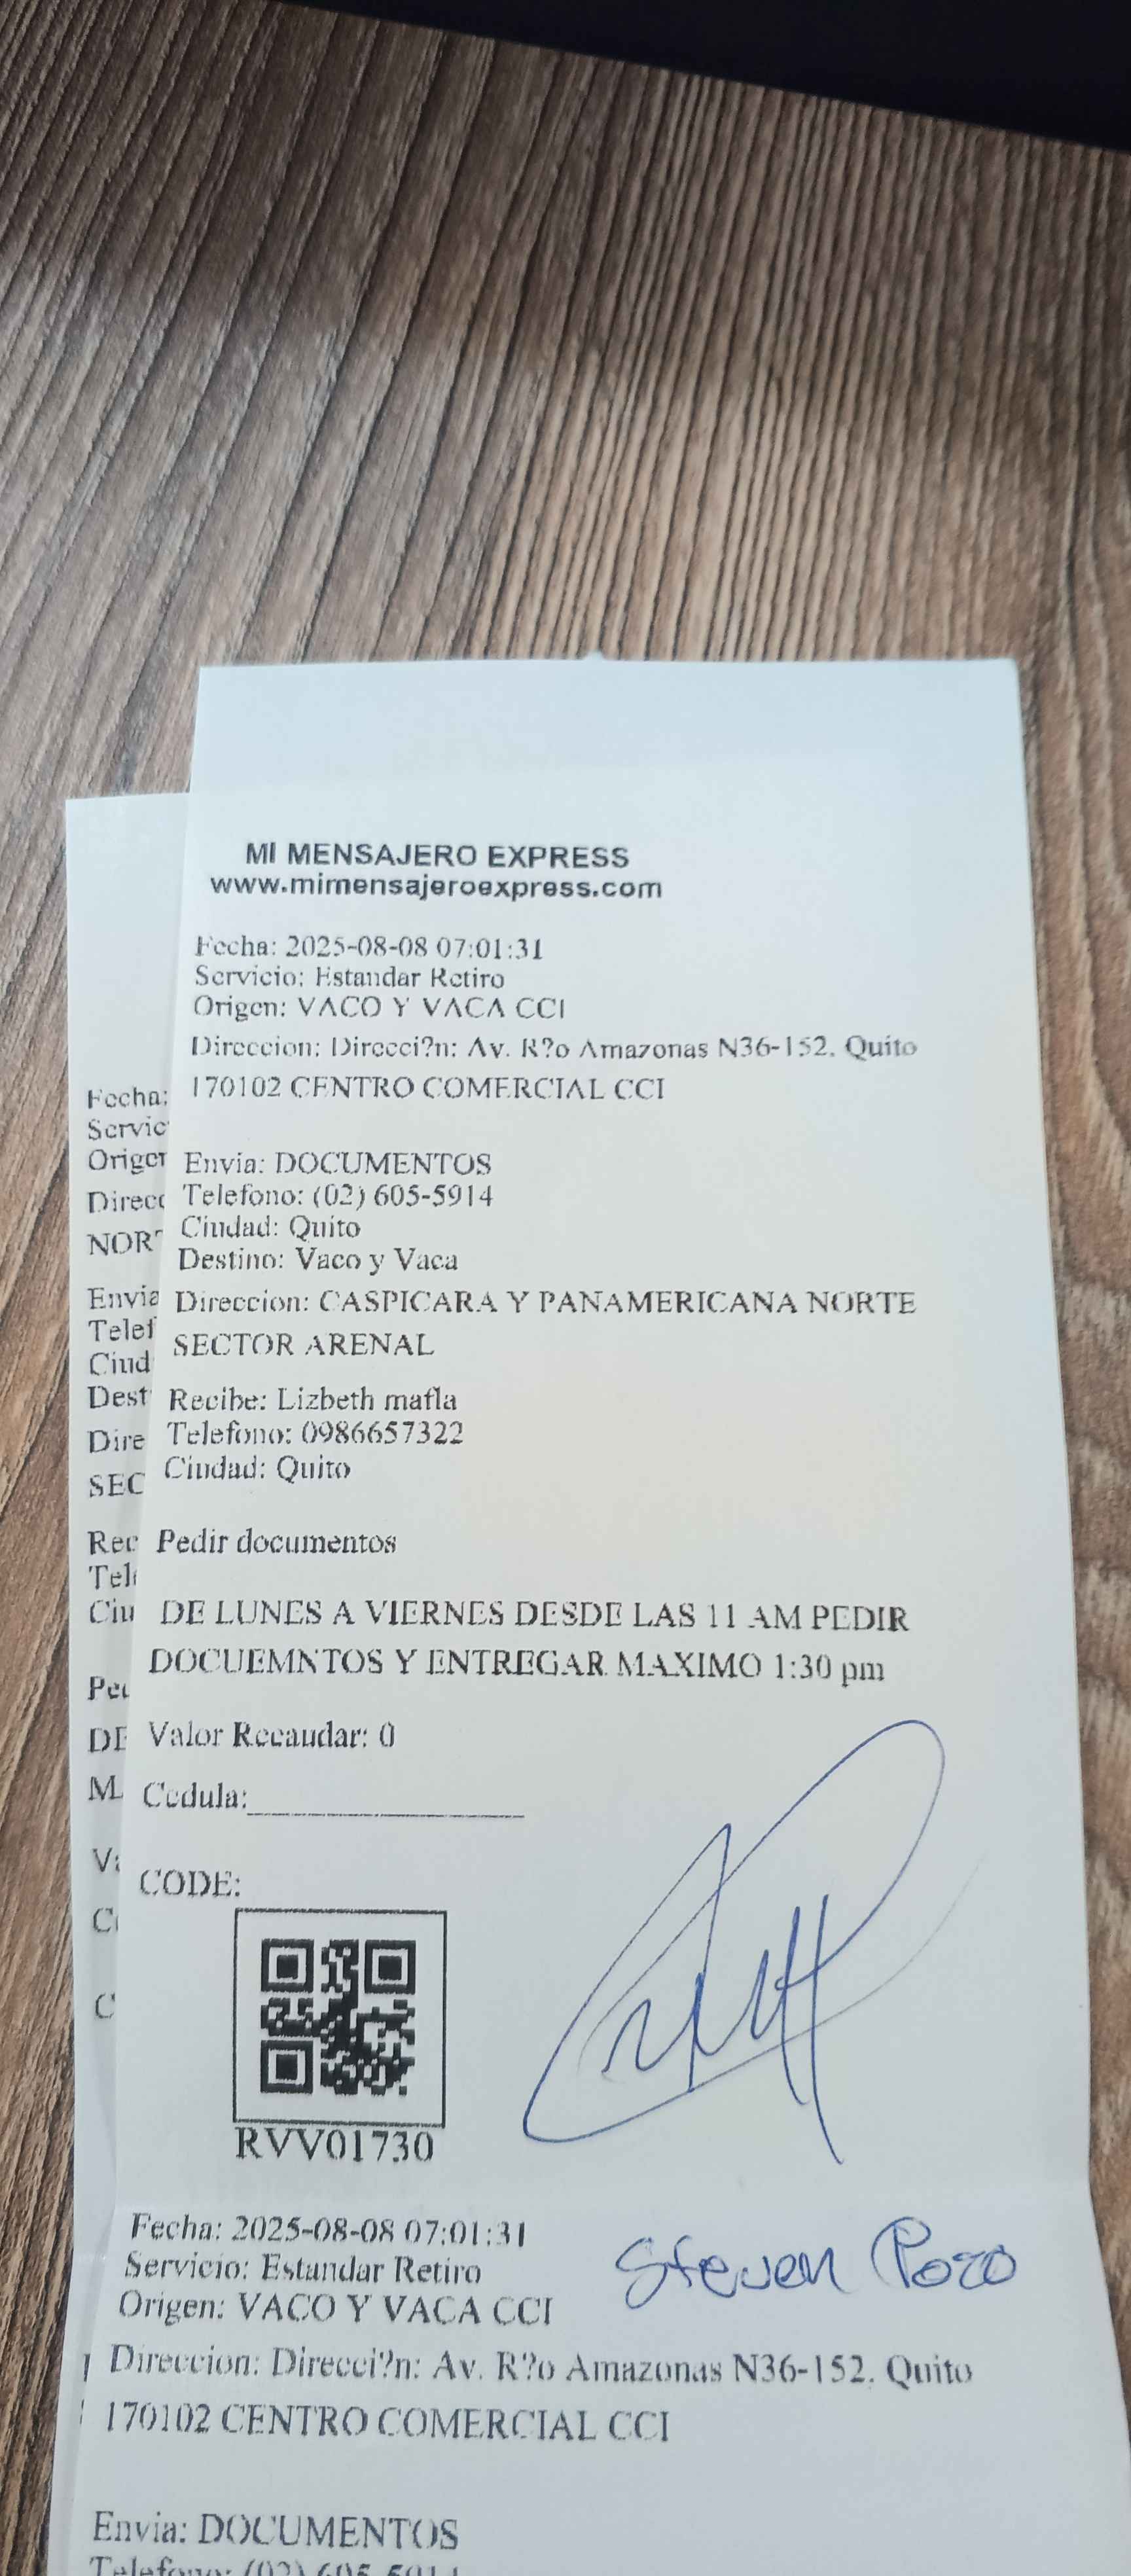 MI MENSAJERO EXPRESS
www.mimensajeroexpress.com
Fecha: 2025-08-08 07:01:31
Servicio: Estandar Retiro
Origen: VACO Y VACA CCI
Direccion: Direcci?n: Av. R?o Amazonas N36-152, Quito
170102 CENTRO COMERCIAL CCI
Envia: DOCUMENTOS
Telefono: (02) 605-5914
Ciudad: Quito
Destino: Vaco y Vaca
Direccion: CASPICARA Y PANAMERICANA NORTE
SECTOR ARENAL
Recibe: Lizbeth mafla
Telefono: 0986657322
Ciudad: Quito
Pedir documentos
DE LUNES A VIERNES DESDE LAS 11 AM PEDIR
DOCUEMNTOS Y ENTREGAR MAXIMO 1:30 pm
Valor Recaudar: 0
Cedula:
CODE:
RVV01730
Steven Pozo
Fecha: 2025-08-08 07:01:31
Servicio: Estandar Retiro
Origen: VACO Y VACA CCI
Direccion: Direcci?n: Av. R?o Amazonas N36-152, Quito
170102 CENTRO COMERCIAL CCI
Envia: DOCUMENTOS
Telefono: (02) 605-5914
Fecha:
Servic
Origen
Direcc
NOR
Envia
Telef
Ciud
Dest
Dire
SEC
Rec
Tel
Ciu
Pe
DE
M
V
C
C